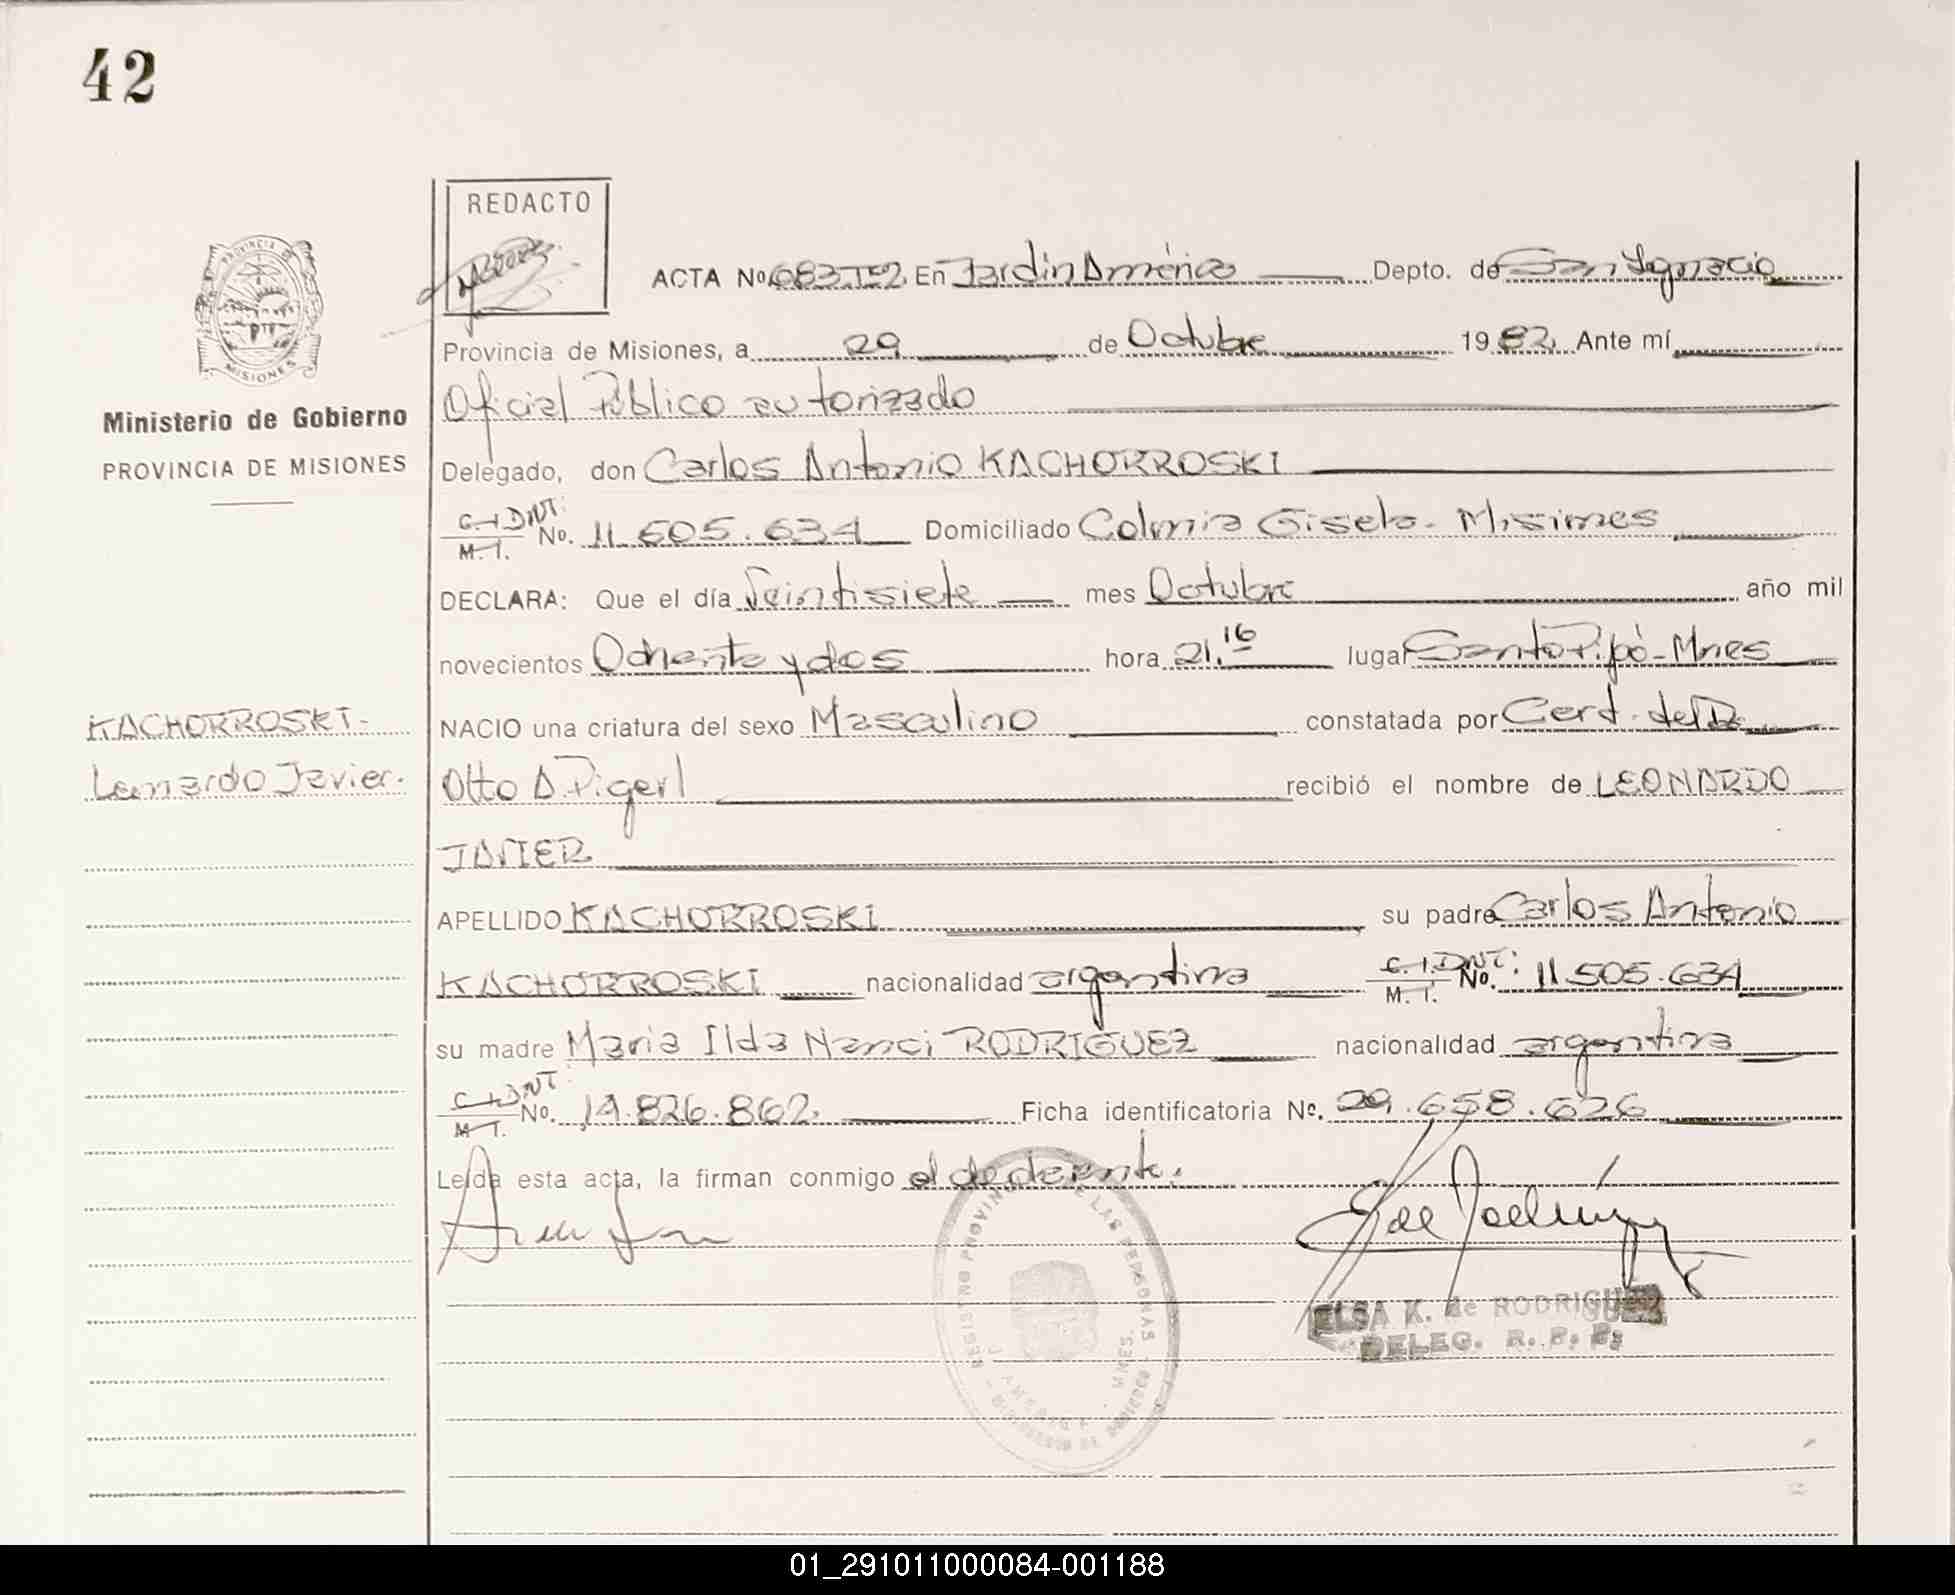 42
REDACTO
ACTA No. 683.T=2. En Jardin América Depto. de San Ignacio
PROVINCIA DE
MISIONES
Provincia de Misiones, a 29 de Octubre 1982. Ante mí
Oficial Público autorizado
Ministerio de Gobierno
PROVINCIA DE MISIONES
Delegado, don Carlos Antonio KACHORROSKI
C.I. DNI: M.I. No. 11.505.634 Domiciliado Colonia Gisela - Misiones
DECLARA: Que el día Veintisiete mes Octubre año mil
novecientos Ochenta y dos hora 21.16 lugar Santo Pipó - Mnes
KACHORROSKI -
NACIO una criatura del sexo Masculino constatada por Cert. del Dr.
Leonardo Javier.
Otto A. Pigerl recibió el nombre de LEONARDO
JAVIER
APELLIDO KACHORROSKI su padre Carlos Antonio
KACHORROSKI nacionalidad argentina C.I. DNI: M.I. No. 11.505.634
su madre Maria Ilda Nanci RODRIGUEZ nacionalidad argentina
C.I. DNI: M.I. No. 14.826.862. Ficha identificatoria No. 29.658.626
Leída esta acta, la firman conmigo el declarante.
REGISTRO PROVINCIAL DE LAS PERSONAS
MNES.
ELSA K. de RODRIGUEZ
DELEG. R. P. P.
01_291011000084-001188